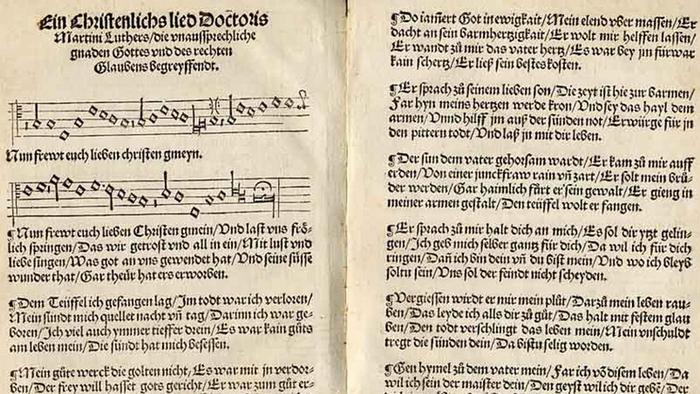 Ein Christenlichs lied Doctoris
Martini Luthers/die vnaussprechliche
gnaden Gottes vnd des rechten
Glaubens begreyffendt.
Nun frewt euch lieben christen gmeyn.
¶Nun frewt euch lieben Christen gmein/Vnd last vns frö-
lich springen/Das wir getrost vnd all in ein/Mit lust vnd
liebe singen/Was got an vns gewendet hat/Vnd seine süsse
wunder that/Gar theür hat ers erworben.
¶Dem Teüffel ich gefangen lag/Im todt war ich verloren/
Mein sündt mich quellet nacht vñ tag/Darinn ich war ge-
boren/Ich viel auch ymmer tieffer drein/Es war kain güts
am leben mein/Die sündt hat mich besessen.
¶Mein güte werck die golten nicht/Es war mit jn verdor-
ben/Der frey will hasset gots gericht/Er war zum güt er-
¶Do iamert Got in ewigkait/Mein elend vber massen/Er
dacht an sein barmhertzigkait/Er wolt mir helffen lassen/
Er wandt zů mir das vater hertz/Es war bey jm fürwar
kain schertz/Er ließ sein bestes kosten.
¶Er sprach zů seinem lieben son/Die zeyt ist hie zur barmen/
Far hyn meins hertzen werde kron/Vnd sey das hayl dem
armen/Vnnd hilff jm auß der sünden not/Erwürge für jn
den pittern todt/Vnd laß jn mit dir leben.
¶Der sun dem vater gehorsam wardt/Er kam zů mir auff
erden/Von einer junckfraw rain vñ zart/Er solt mein brü-
der werden/Gar haimlich fürt er sein gewalt/Er gieng in
meiner armen gestalt/Den teüffel wolt er fangen.
¶Er sprach zů mir halt dich an mich/Es sol dir ytzt gelin-
gen/Ich geb mich selber gantz für dich/Da wil ich für dich
ringen/Dañ ich bin dein vñ du bist mein/Vnd wo ich bleyb
soltu sein/Vns sol der feindt nicht scheyden.
¶Vergiessen wirdt er mir mein plüt/Darzů mein leben rau-
ben/Das leyde ich alls dir zů güt/Das halt mit festem glau
ben/Den todt verschlingt das leben mein/Mein vnschuldt
tregt die sünden dein/Da bistu selig worden.
¶Gen hymel zů dem vater mein/Far ich vō disem leben/Da
wil ich sein der maister dein/Den geyst wil ich dir gebē/Der